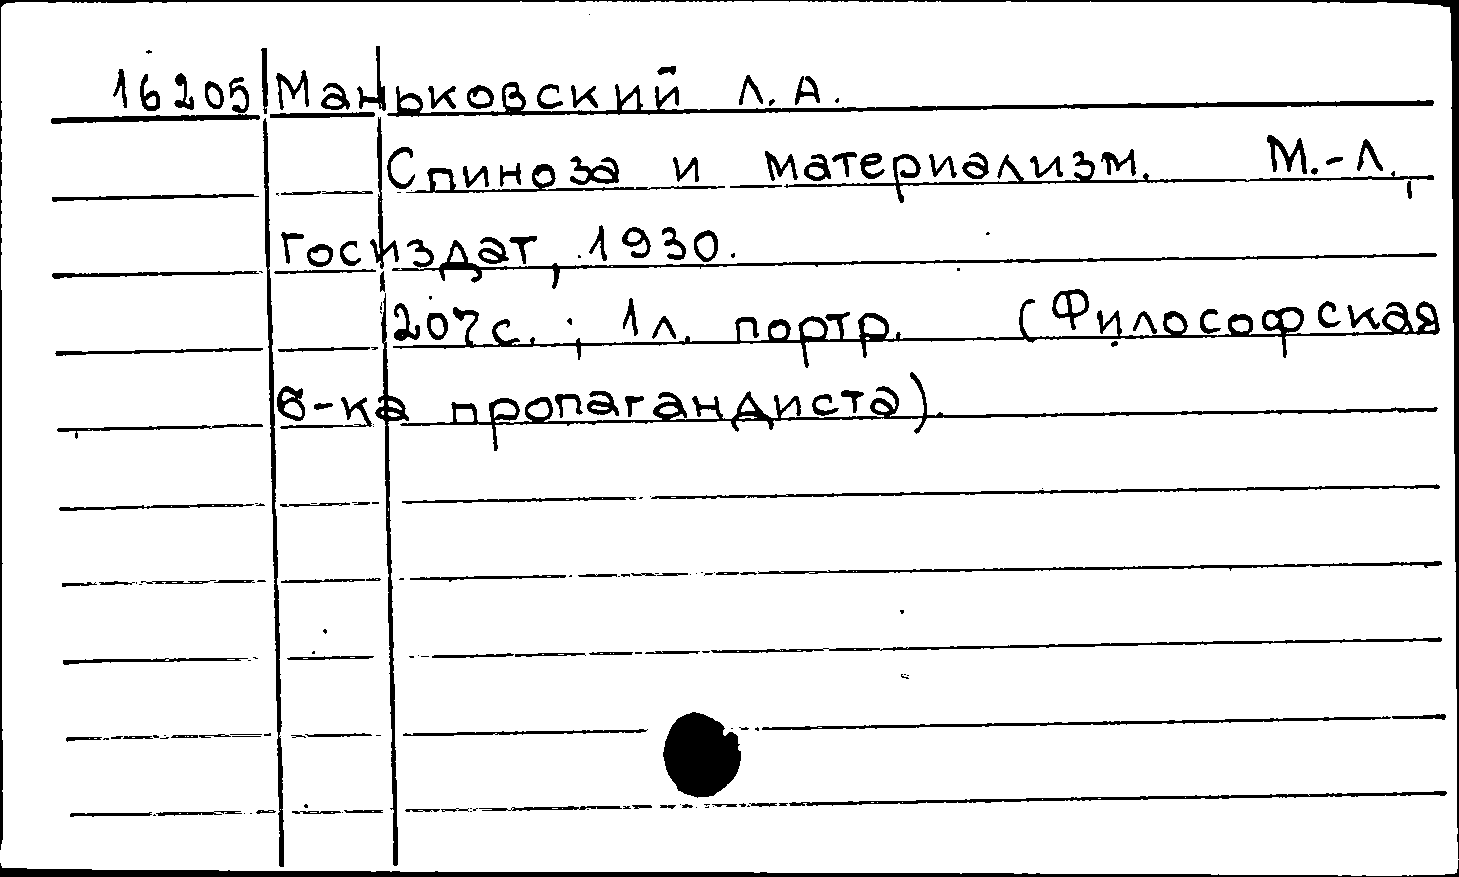 16205 Маньковский Л.А.
Спиноза и материализм. М.-Л.,
Госиздат, 1930.
207с.; 1л. портр. (Философская
б-ка пропагандиста).